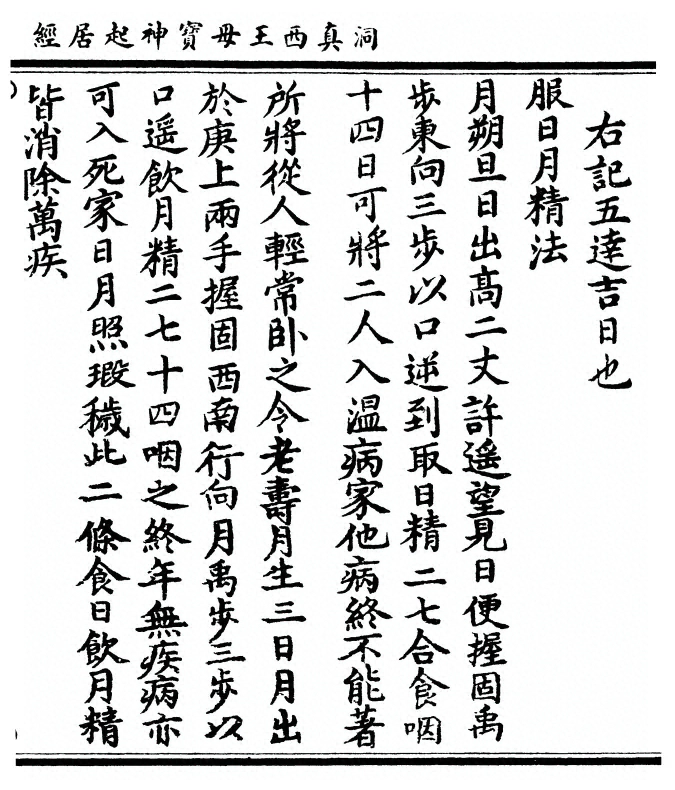 洞真西王母寶神起居經
右記五達吉日也
服日月精法
月朔旦日出髙二丈許遥望見日便握固禹
步東向三步以口逆到取日精二七合食咽
十四日可將二人入温病家他病終不能著
所將從人輕常卧之令老壽月生三日月出
於庚上兩手握固西南行向月禹步三步以
口遥飲月精二七十四咽之終年無疾病亦
可入死家日月照瑕穢此二條食日飲月精
皆消除萬疾